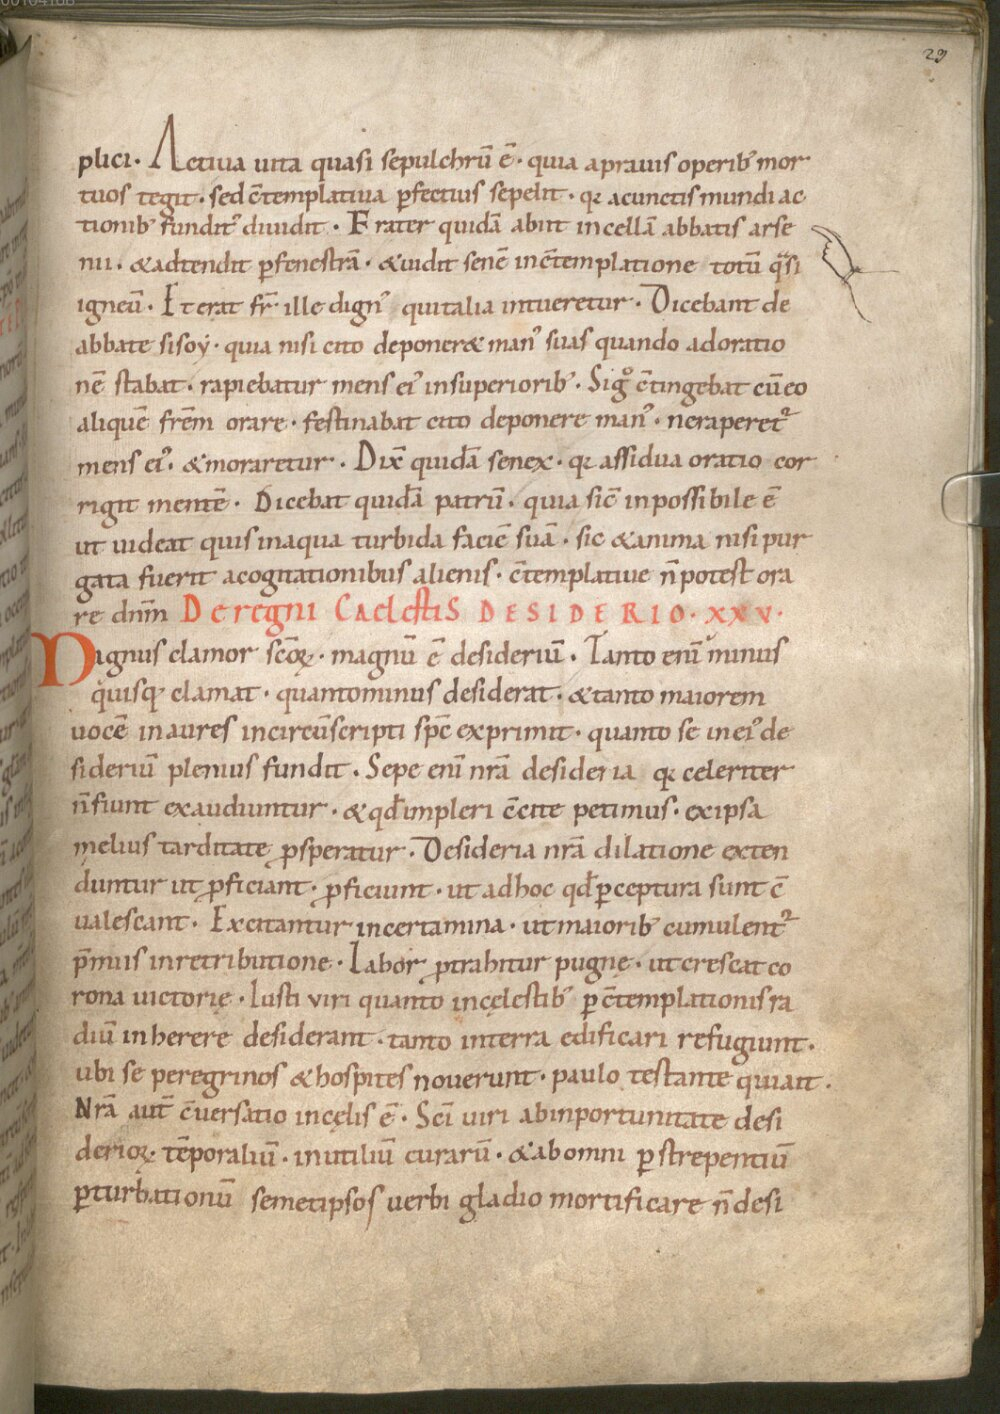 29
plici. Actiua uita quasi sepulchrū ē. quia aprauis operibꝰ mor
tuos tegit. sed c̄templatiua ꝑfectius sepelit. qꝛ acunctis mundi ac
tionibꝰ funditꝰ diuidit. Frater quidā abiit incellā abbatis arse
nii. &adtendit ꝑfenestrā. &uidit senē inc̄templatione totū q̄si
igneū. Et erat fr̄ ille dignꝰ qui talia intueretur. Dicebant de
abbate sisoẏ. quia nisi cito deponer& manꝰ suas quando adoratio
nē stabat. rapiebatur mens eiꝰ insuperioribꝰ. Sigͦ c̄tingebat cū eo
aliquē frēm orare. festinabat cito deponere manꝰ. neraperet᷑
mens eiꝰ. &moraretur. Dix̄ quidā senex. qꝛ assidua oratio cor
rigit mentē. Dicebat quidā patrū. quia sic̄ inpossibile ē
ut uideat quis inaqua turbida faciē suā. sic &anima nisi pur
gata fuerit acogitationibus alienis. c̄templatiue n̄ potest ora
re dn̄m De regni Caelestis DESIDERIO. XXV.
Magnus clamor sc̄oꝝ. magnū ē desideriū. Tanto enī minus
quisqꝫ clamat. quantominus desiderat. &tanto maiorem
uocē inaures incircūscripti sp̄c exprimit. quanto se in eiꝰ de
sideriū plenius fundit. Sepe enī nr̄a desideria qꝛ celeriter
n̄ fiunt exaudiuntur. &qd̄ impleri c̄cite petimus. exipsa
melius tarditate ꝓsperatur. Desideria nr̄a dilatione exten
duntur ut ꝓficiant. ꝓficiunt. ut adhoc qd̄ ꝑceptura sunt c̄
ualescant. Excitantur incertamina. ut maioribꝰ cumulent᷑
p̄miis inretributione. Labor ꝓtrahitur pugnę. ut crescat co
rona uictorię. Iusti uiri quanto incęlestibꝰ ꝑ c̄templationis ra
diū inherere desiderant. tanto interra edificari refugiunt.
ubi se peregrinos &hospites nouerunt. paulo testante quiait.
Nr̄a aut̄ c̄uersatio incęlis ē. Sc̄i uiri abinportunitate desi
derioꝝ. tēporaliū. inutiliū curarū. &abomni ꝑstrepentiū
ꝑturbationū semetipsos uerbi gladio mortificare n̄ desi